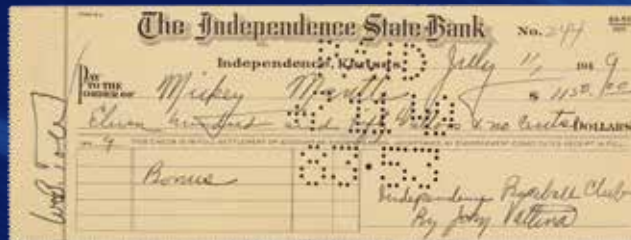 The Independence State Bank No. 244
Independence, Kansas, July 11, 1949
PAY TO THE ORDER OF Mickey Mantle $ 1150.00
Eleven hundred and fifty Dollars & no Cents DOLLARS
Bonus
Independence Baseball Club
By John Vattina